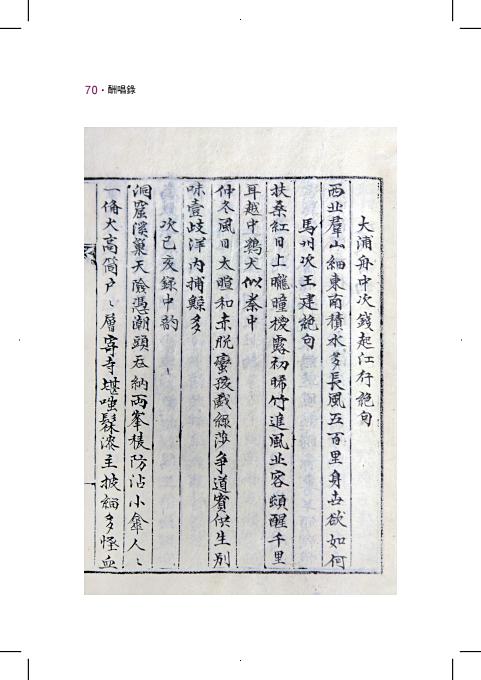 70 · 酬唱錄
大浦舟中次錢起江行絶句
西北羣山細東南積水多長風五百里身世欲如何
馬州次王建絶句
扶桑紅日上曨曈椶露初晞竹進風北客頻醒千里
耳越中鷄犬似秦中
仲冬風日太暄和赤脫蠻投戱綠莎爭道賓供生別
味壹歧洋內捕鯨多
次己亥錄中韵
洞窟溪巢天險憑潮頭吞納兩峯稜防沾小傘人〻
一佩犬高筒戶〻層寄寺堪嗤鬆漆主披緇多怪血